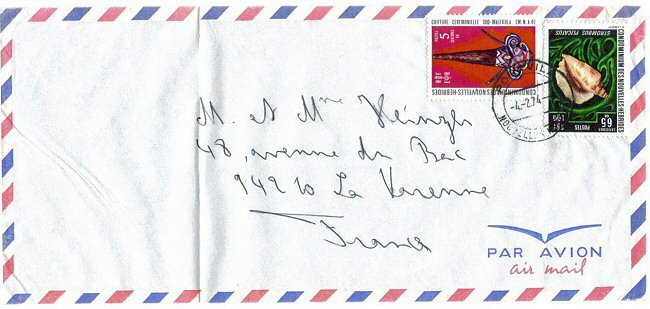 COIFFURE CEREMONIELLE SUD MALEKULA
POSTES 5 CENTIMES OR
CONDOMINIUM DES NOUVELLES-HEBRIDES
STROMBUS PLICATUS
CONDOMINIUM DES NOUVELLES-HEBRIDES
POSTES 65 CENTIMES OR
-4.-2.74
M. et Mme Heinzer
48, avenue du Bac
94210 La Varenne
France
PAR AVION
air mail